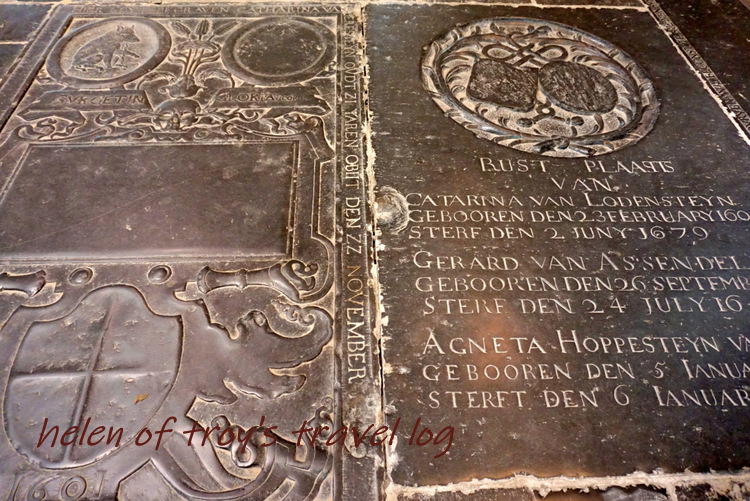 CATHARINA VA
OUDT
IAREN OBIIT DEN ZZ NOVEMBER
GLORIA
1601
RUST PLAATS
VAN
CATARINA VAN LODENSTEYN
GEBOOREN DEN 23 FEBRUARY 160
STERF DEN 2 JUNY 1679
GERARD VAN ASSENDEL
GEBOOREN DEN 26 SEPTEM
STERF DEN 24 JULY 16
AGNETA HOPPESTEYN VA
GEBOOREN DEN 5 IANUA
STERFT DEN 6 IANUAR
helen of troy's travel log